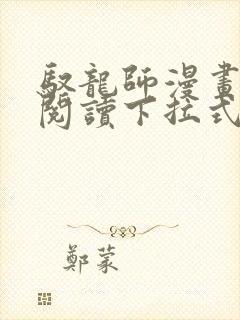 馭龍師漫畫
閱讀下拉式
鄭蒙